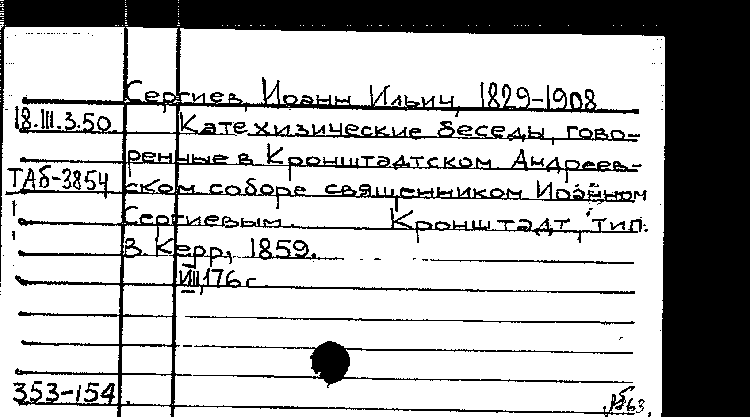 Сергиев, Иоанн Ильич, 1829-1908
18.III.3.50. Катехизические беседы, гово-
ренные в Кронштадтском Андреев-
ТАб-3854 ском соборе священником Иоанном
Сергиевым. Кронштадт, тип.
В. Керр, 1859.
VIII, 176 с
353-154.